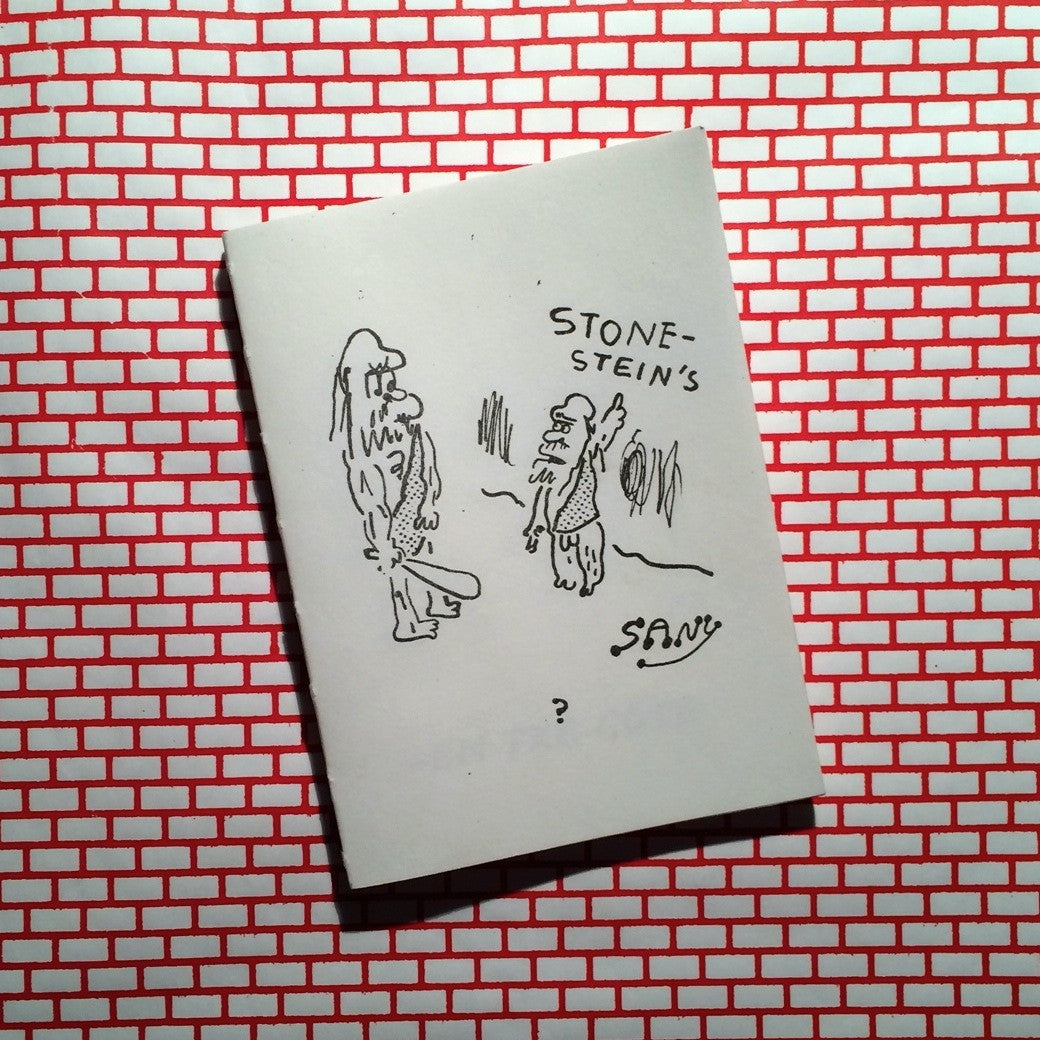 STONE-
STEIN'S
SANY
?